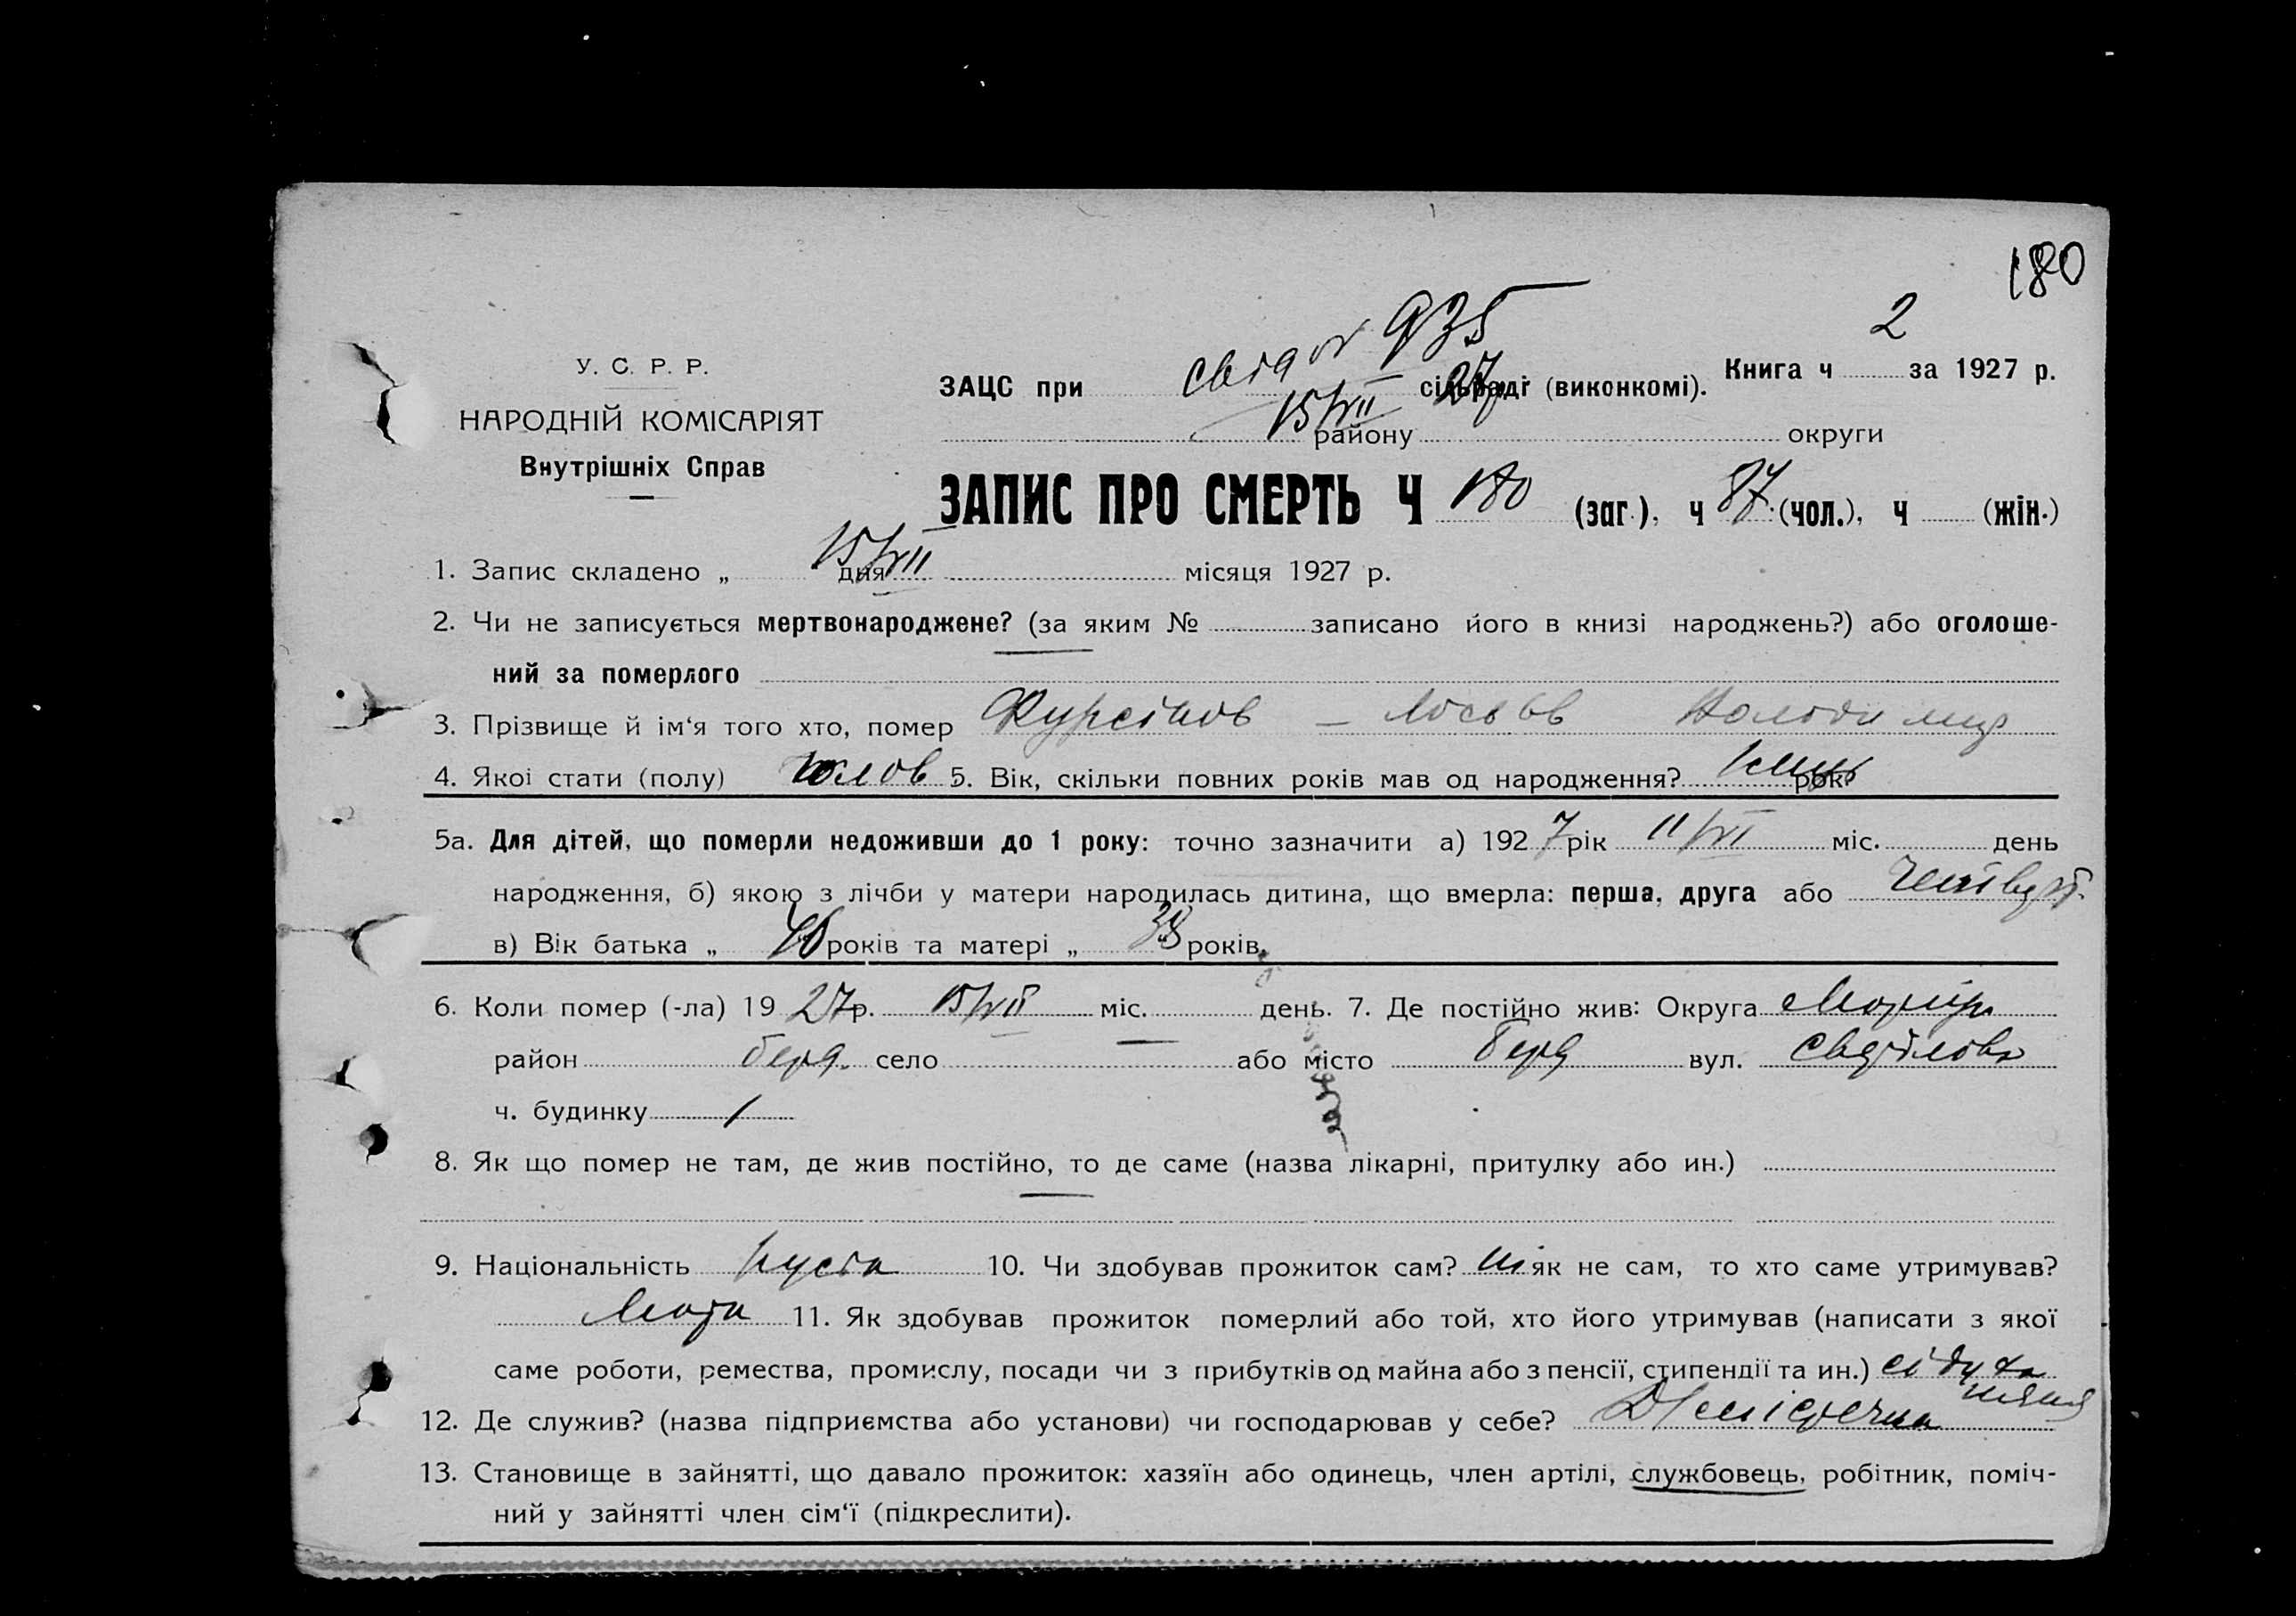 180
2
935
У. С. Р. Р.
НАРОДНІЙ КОМІСАРІЯТ
Внутрішніх Справ
ЗАЦС при сільраді (виконкомі). Книга ч за 1927 р.
15/VII 27
району округи
ЗАПИС ПРО СМЕРТЬ Ч 180 (заг.), ч 87 (чол.), ч (жін.)
1. Запис складено „ 15/VII дня місяця 1927 р.
2. Чи не записується мертвонароджене? (за яким № записано його в книзі народжень?) або оголоше-
ний за померлого
3. Прізвище й ім‘я того хто, помер Фурсінов – Лосьєв Володимир
4. Якоі стати (полу) чолов 5. Вік, скільки повних років мав од народження? рок?
5а. Для дітей, що померли недоживши до 1 року: точно зазначити а) 1927 рік 11/VI міс. день
народження, б) якою з лічби у матери народилась дитина, що вмерла: перша, друга або четверт.
в) Вік батька „ 40 років та матері „ 38 років.
6. Коли помер (-ла) 1927 р. 15/VII міс. день. 7. Де постійно жив: Округа Маріуп
район берд. село або місто Берд вул. Свердлова
ч. будинку 1
8. Як що помер не там, де жив постійно, то де саме (назва лікарні, притулку або ин.)
9. Національність руска 10. Чи здобував прожиток сам? ні як не сам, то хто саме утримував?
Мати 11. Як здобував прожиток померлий або той, хто його утримував (написати з якої
саме роботи, ремества, промислу, посади чи з прибутків од майна або з пенсії, стипендії та ин.)
няня
12. Де служив? (назва підприємства або установи) чи господарював у себе?
13. Становище в зайнятті, що давало прожиток: хазяїн або одинець, член артілі, службовець, робітник, поміч-
ний у зайнятті член сім‘ї (підкреслити).